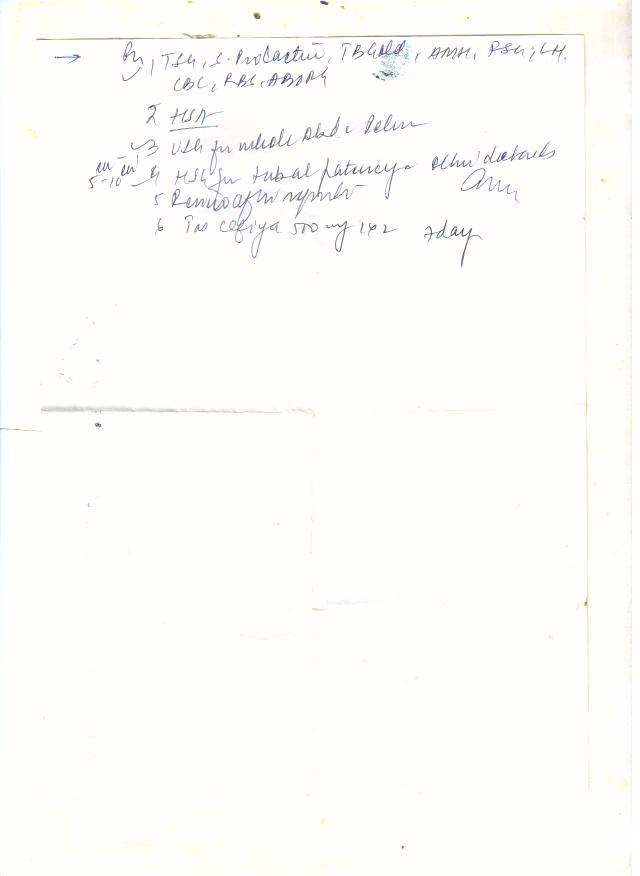 → 1, TSH, S. Prolactin, TB Gold, AMH, FSH, LH.
CBC, RBS, ABORH
2 HSA
3 USG for whole Abd & Pelvis
5-10 4 HSG for tubal patency &
5 Review after reports
6 Tab 500 mg 1x2 7day